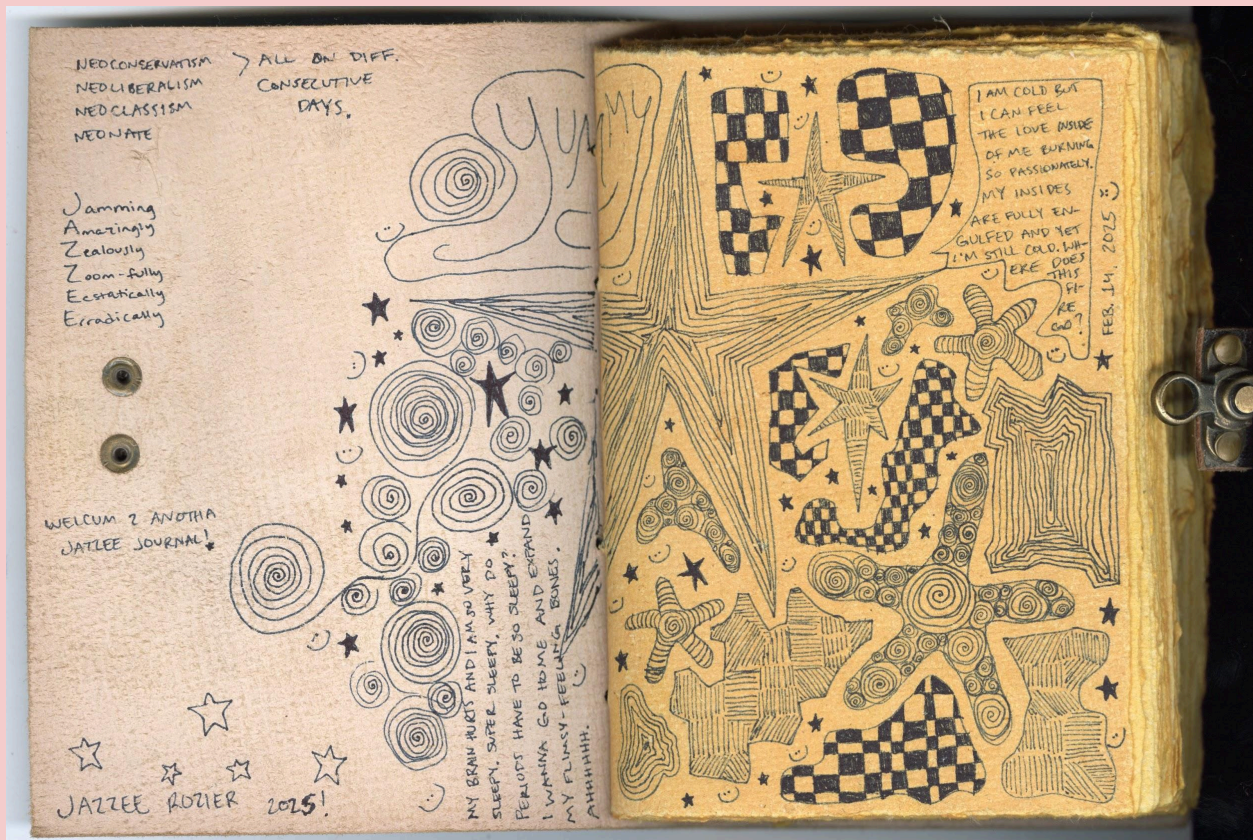 NEOCONSERVATISM > ALL ON DIFF.
NEOLIBERALISM CONSECUTIVE
NEOCLASSISM DAYS.
NEONATE
Jamming
Amazingly
Zealously
Zoom-fully
Ecstatically
Erradically
WELCUM 2 ANOTHA
JAZZEE JOURNAL!
JAZZEE ROZIER 2025!
YUMMY
MY BRAIN HURTS AND I AM SO VERY
SLEEPY. SUPER SLEEPY. WHY DO
PERIODS HAVE TO BE SO SLEEPY?
I WANNA GO HOME AND EXPAND
MY FLIMSY-FEELING BONES.
AHHHHHH.
I AM COLD BUT
I CAN FEEL
THE LOVE INSIDE
OF ME BURNING
SO PASSIONATELY.
MY INSIDES
ARE FULLY EN-
GULFED AND YET
I'M STILL COLD. WH-
ERE DOES
THIS
FI-
RE
GO?
FEB. 14 2025 :)